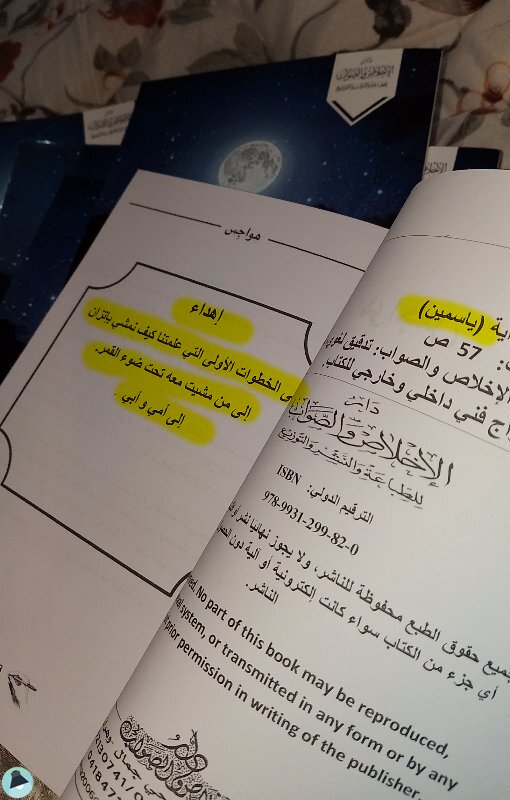 دار
الإخلاص والصواب
هواجس
إهداء
الخطوات الأولى التي علمتنا كيف نمشي باتزان
إلى من مشيت معه تحت ضوء القمر.
إلى أمي و أبي .
(ياسمين)
57 ص
الإخلاص والصواب: تدقيق لغوي
فني داخلي وخارجي للكتاب.
دار
الإخلاص والصواب
للطباعة والنشر والتوزيع
الترقيم الدولي: ISBN
978-9931-299-82-0
جميع حقوق الطبع محفوظة للناشر، ولا يجوز نهائيا نشر
أي جزء من الكتاب سواء كانت إلكترونية أو آلية دون
الناشر.
No part of this book may be reproduced,
system, or transmitted in any form or by any
prior permission in writing of the publisher.
جمال